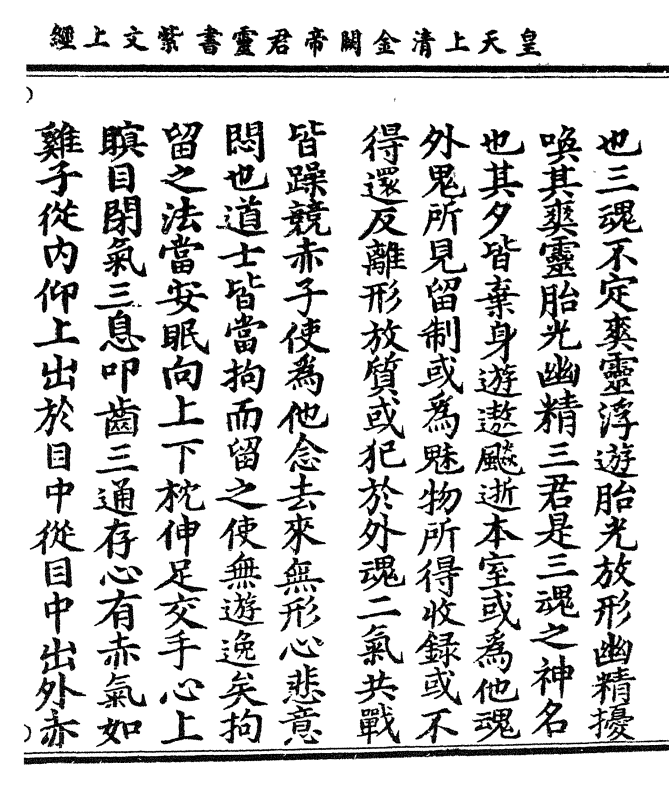 皇天上清金闕帝君靈書紫文上經
也三魂不定爽靈浮遊胎光放形幽精擾
喚其爽靈胎光幽精三君是三魂之神名
也其夕皆棄身遊遨飈逝本室或爲他魂
外鬼所見留制或爲魅物所得收録或不
得還反離形放質或犯於外魂二氣共戰
皆躁競赤子使爲他念去來無形心悲意
悶也道士皆當拘而留之使無遊逸矣拘
留之法當安眠向上下枕伸足交手心上
瞑目閉氣三息叩齒三通存心有赤氣如
雞子從内仰上出於目中從目中出外赤